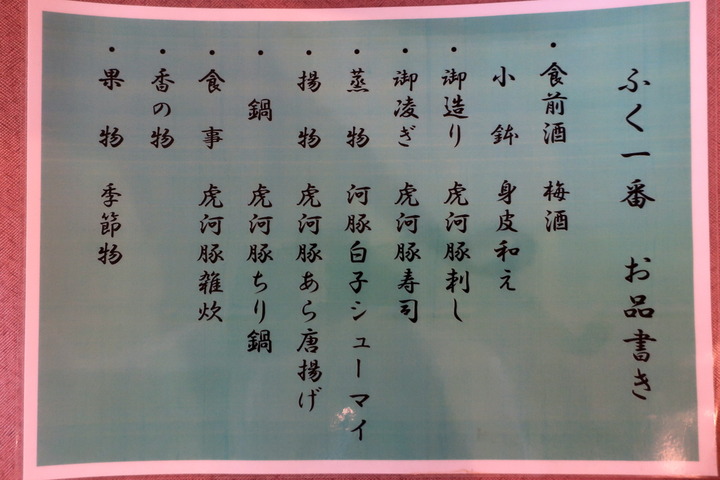 ふく一番 お品書き
・食前酒 梅酒
小鉢 身皮和え
・御造り 虎河豚刺し
・御凌ぎ 虎河豚寿司
・蒸物 河豚白子シューマイ
・揚物 虎河豚あら唐揚げ
・鍋 虎河豚ちり鍋
・食事 虎河豚雑炊
・香の物
・果物 季節物